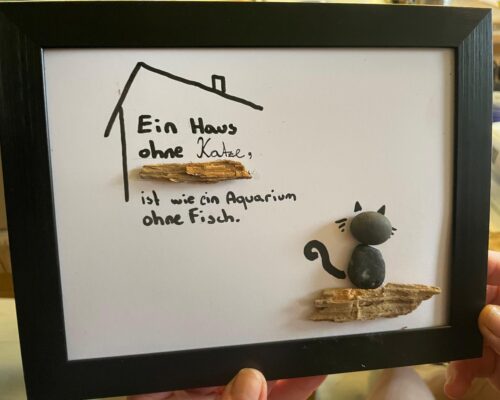 Ein Haus
ohne Katze,
ist wie ein Aquarium
ohne Fisch.